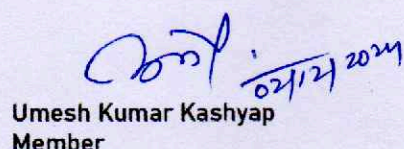 02/12/2024
Umesh Kumar Kashyap
Member